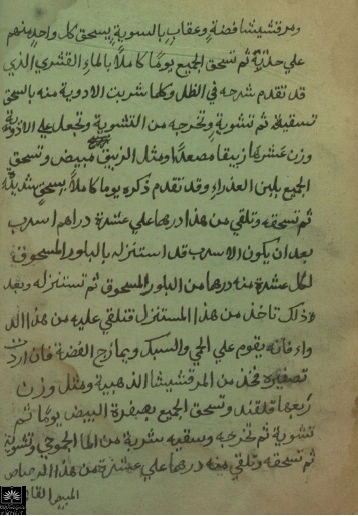 ومرقشيشا فضة وعقاب بالسوية يسحق كل واحد منهم
على حدته ثم تسحق الجميع يوما كاملا بالماء القشري الذي
قد تقدم شرحه في الظل وكلما شربت الادوية منه بالسحق
تسقيه ثم تشويه وتخرجه من التشوية وتجعل على الادوية
وزن عشرها زيبقا مصعدا ومثل الزيبق مبيض وتسحق
الجميع بلبن العذراء وقد تقدم ذكره يوما كاملا يسحق
ثم تسحقه وتلقي من هذا درهما على عشرة دراهم اسرب
بعد ان يكون الاسرب قد استنزل به بالبلور المسحوق
لكل عشرة منه درهما من البلور المسحوق ثم تستنزله وبعد
ذلك تاخذ من هذا المستنزل فتلقي عليه من هذا الد
واء فانه يقوم على الحمي والسبك ويمازج الفضة فان اردت
تصفيره فخذ من المرقشيشا الذهبية ومثل وزن
ربعها قلقند وتسحق الجميع بصفرة البيض يوما ثم
تشويه ثم تخرجه وتسقيه شربة من الماء وتشويه
ثم تسحقه وتلقي منه درهما على عشرة من هذا الرصاص
المبيض